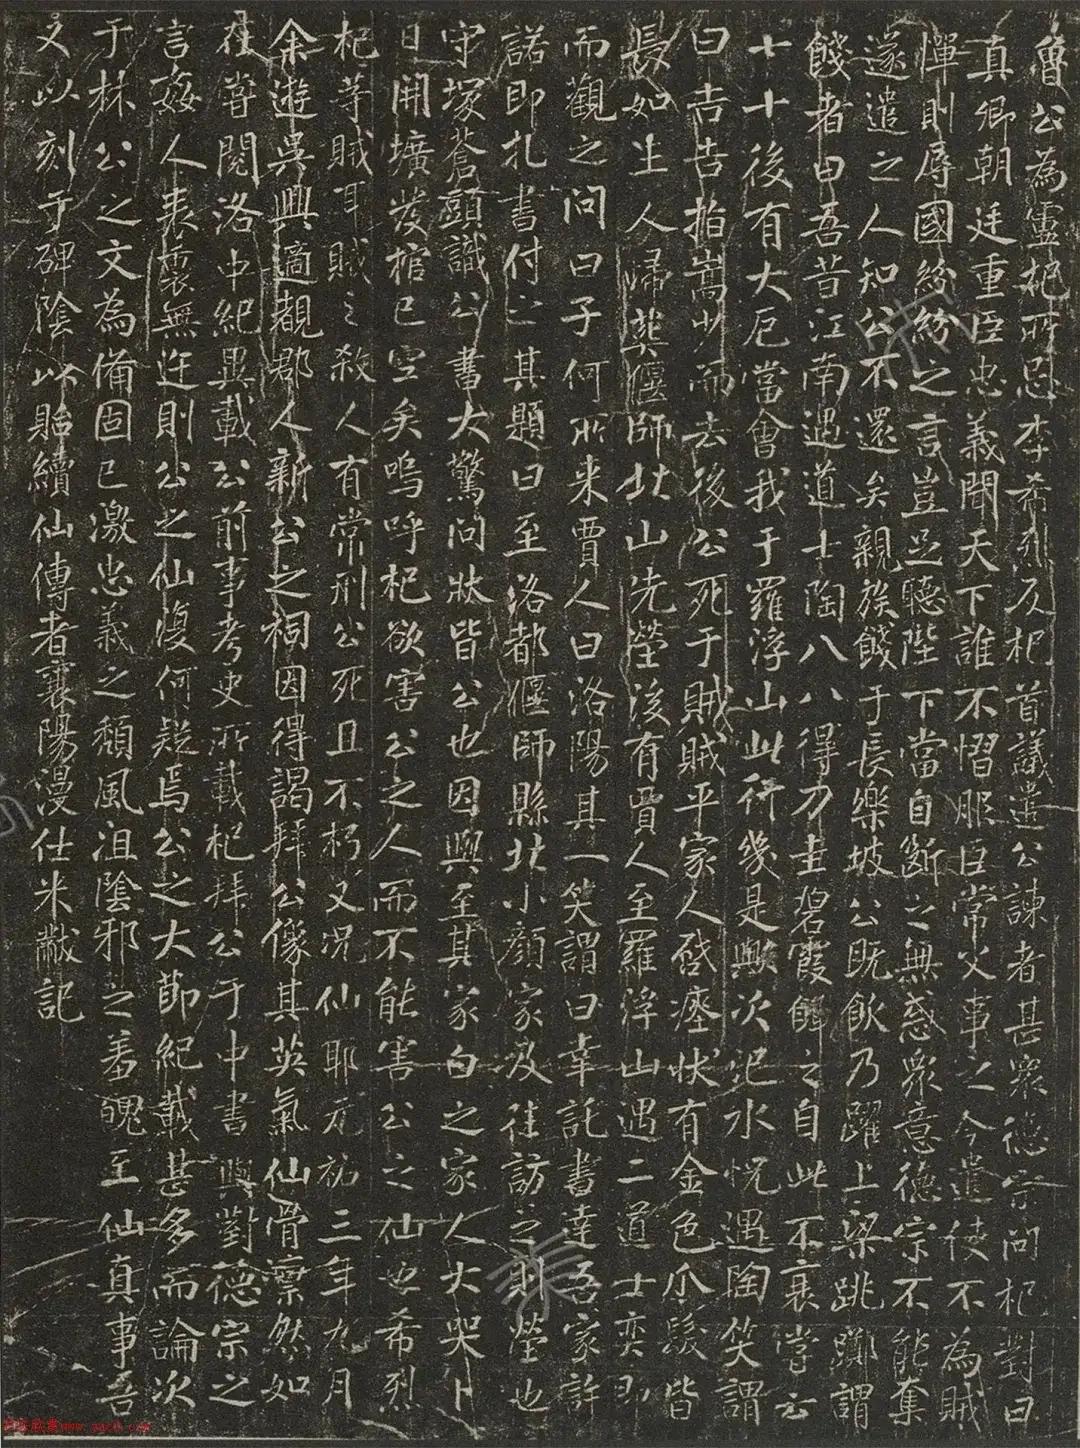 魯公為盧杞所忌李希烈反杞首議遣公諫者甚眾德宗问杞對曰
真卿朝廷重臣忠義聞天下誰不慴服臣常父事之今遣使不為賊
憚則辱國紛紛之言豈足聽陛下當自斷之無惑眾意德宗不能奪
遂遣之人知公不還矣親族餞于長樂坡公既飲乃躍上梁跳躑謂
餞者曰吾昔江南遇道士陶八八得刀圭碧霞餌之自此不衰嘗云
七十後有大厄當會我于羅浮山此行幾是歟次汜水怳遇陶笑謂
曰吉吉指嵩少而去後公死于賊賊平家人啓瘞狀有金色爪髮皆
長如生人歸葬偃師北山先塋後有賈人至羅浮山遇二道士奕即
而觀之问曰子何所来賈人曰洛陽其一笑謂曰幸託書達吾家許
諾即札書付之其題曰至洛都偃師縣北小顏家及往訪之則塋也
守塚蒼頭識公書大驚问狀皆公也因與至其家白之家人大哭卜
日開壙發棺已空矣嗚呼杞欲害公之人而不能害公之仙也希烈
杞等賊耳賊之殺人有常刑公死且不朽又况仙耶元祐三年九月
余遊吳興適觀郡人新公之祠因得謁拜公像其英氣仙骨凛然如
在嘗閱洛中紀異載公前事考史所載杞拜公于中書與對德宗之
言姦人表裏無迕則公之仙復何疑焉公之大節紀載甚多而論次
于林公之文為備固已激忠義之頹風沮陰邪之羞魄至仙真事吾
又以刻于碑陰以貽續仙傳者襄陽漫仕米黻記